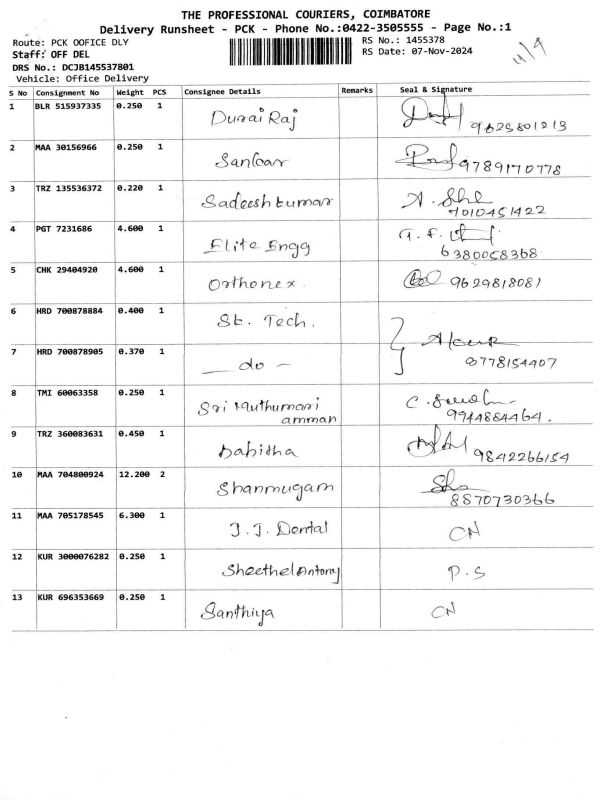 THE PROFESSIONAL COURIERS, COIMBATORE
Delivery Runsheet - PCK - Phone No.:0422-3505555 - Page No.:1
Route: PCK OOFICE DLY
RS No.: 1455378
Staff: OFF DEL
RS Date: 07-Nov-2024
DRS No.: DCJB145537801
Vehicle: Office Delivery
S No Consignment No Weight PCS Consignee Details Remarks Seal & Signature
1 BLR 515937335 0.250 1 Durai Raj
2 MAA 30156966 0.250 1 9789170778
3 TRZ 135536372 0.220 1 Sadeeshkumar
7010451422
4 PGT 7231686 4.600 1 Elite Engg
6380058368
5 CHK 29404920 4.600 1 Orthonex. 9629818081
6 HRD 700878884 0.400 1 St. Tech.
7 HRD 700878905 0.370 1 — do —
8778154407
8 TMI 60063358 0.250 1 Sri Muthumari
amman
9944884464.
9 TRZ 360083631 0.450 1 Babitha
9842266154
10 MAA 704800924 12.200 2 Shanmugam
8870730366
11 MAA 705178545 6.300 1 J.J. Dental CN
12 KUR 3000076282 0.250 1 Sheethel Antony P.S
13 KUR 696353669 0.250 1 Santhiya CN